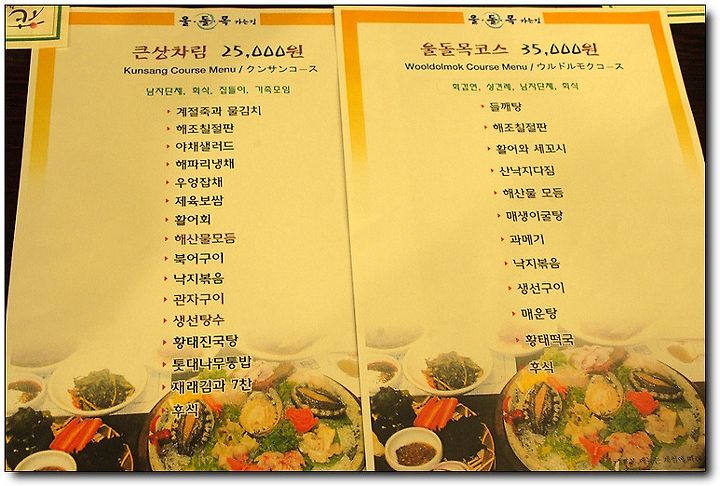 울·돌·목 가는길
큰상차림 25,000원
Kunsang Course Menu / クンサンコース
남자단체, 회식, 집들이, 가족모임
계절죽과 물김치
해조칠절판
야채샐러드
해파리냉채
우엉잡채
제육보쌈
활어회
해산물모듬
북어구이
낙지볶음
관자구이
생선탕수
황태진국탕
톳대나무통밥
재래김과 7찬
후식
울·돌·목 가는길
울돌목코스 35,000원
Wooldolmok Course Menu / ウルドルモクコース
회갑연, 상견례, 남자단체, 회식
들깨탕
해조칠절판
활어와 세꼬시
산낙지다짐
해산물 모듬
매생이굴탕
과메기
낙지볶음
생선구이
매운탕
황태떡국
후식